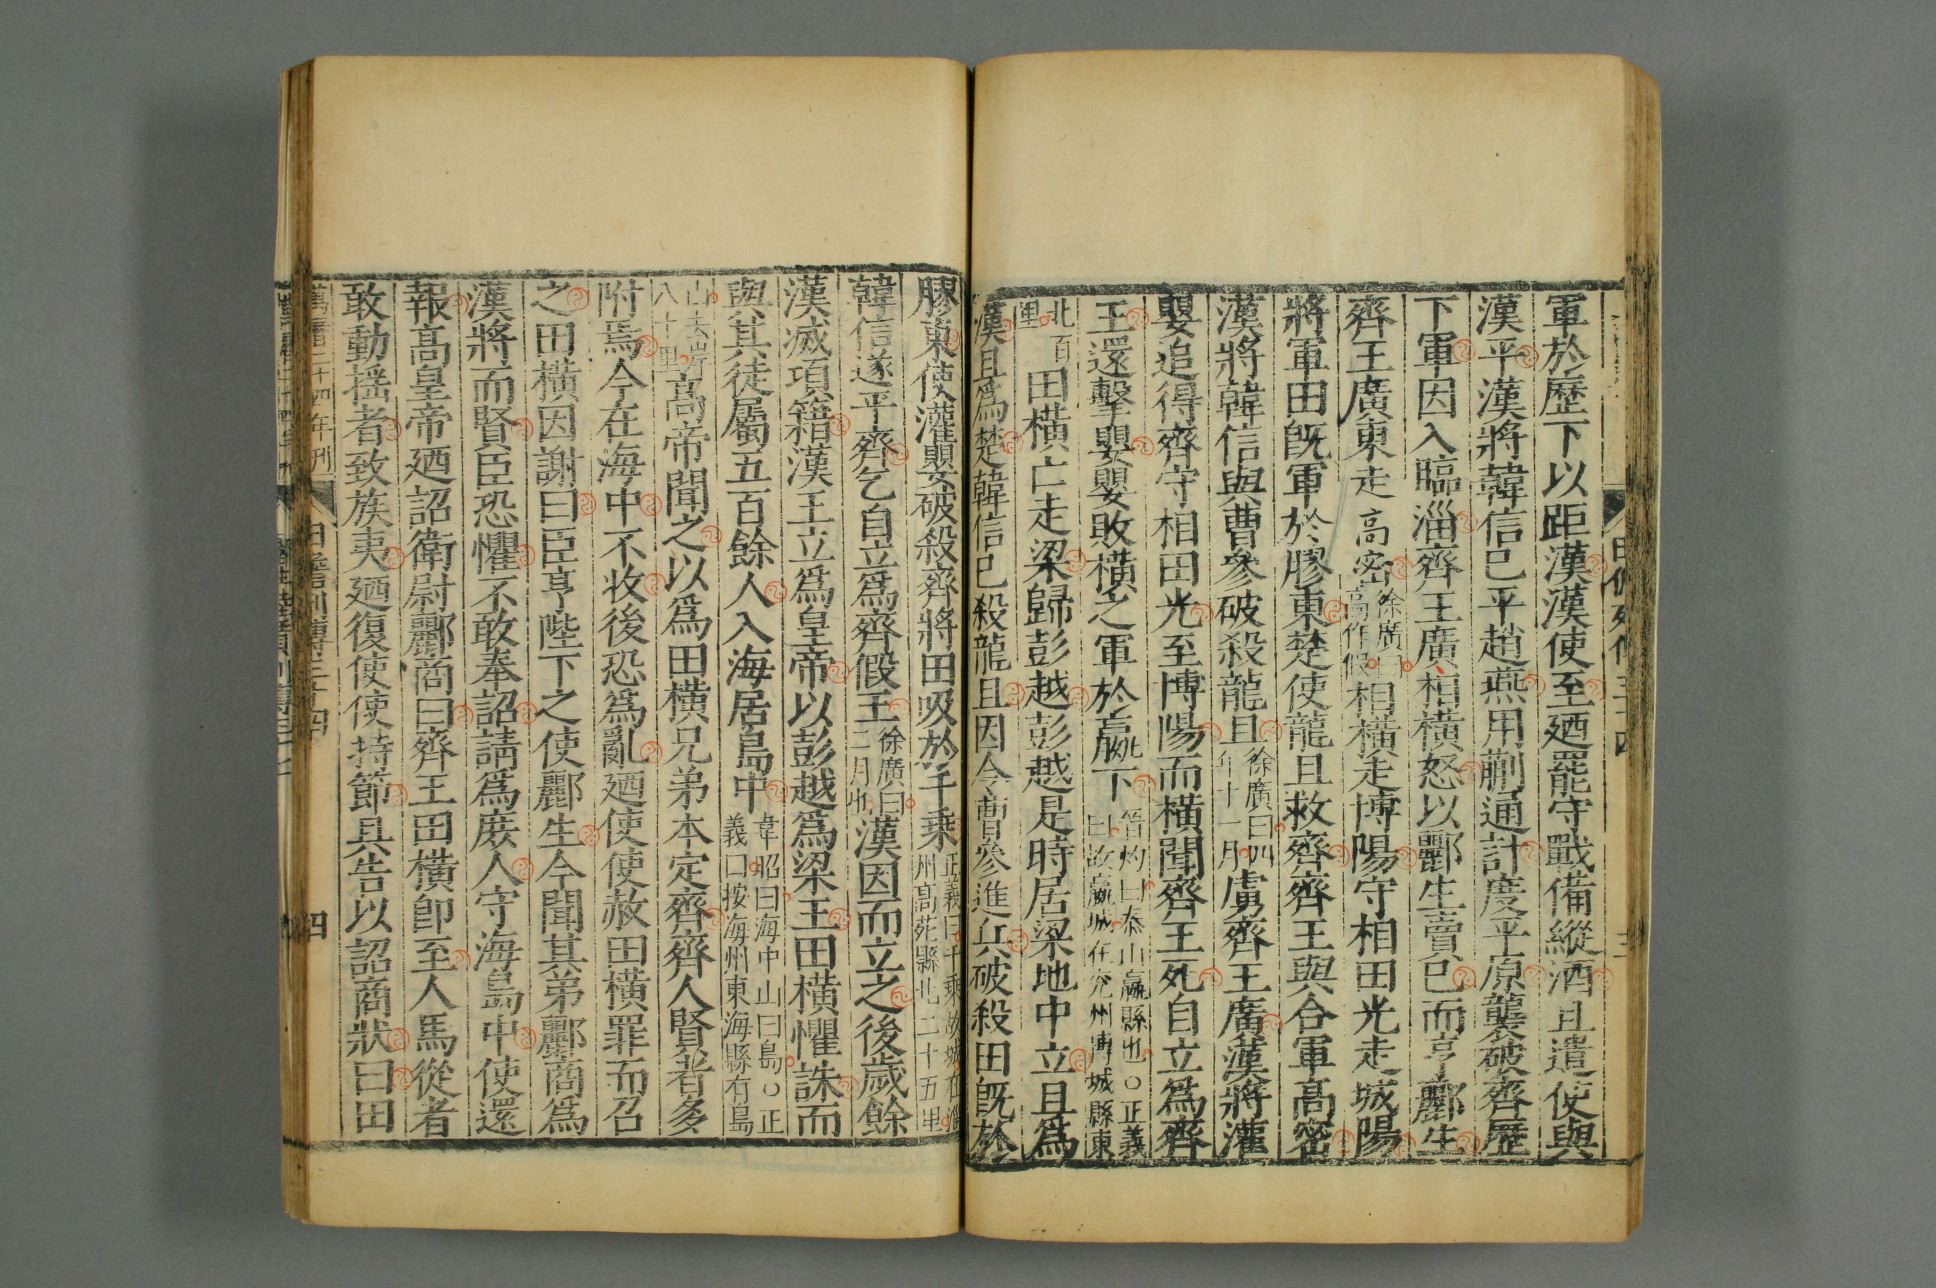 田儋列傳三十四
三
軍於歷下以距漢漢使至廼罷守戰備縱酒且遣使與
漢平漢將韓信已平趙燕用蒯通計度平原襲破齊歷
下軍因入臨淄齊王廣相橫怒以酈生賣已而亨酈生
齊王廣東走高密徐廣曰高作假相橫走博陽守相田光走城陽
將軍田既軍於膠東楚使龍且救齊齊王與合軍高密
漢將韓信與曹參破殺龍且徐廣曰四年十一月虜齊王廣漢將灌
嬰追得齊守相田光至博陽而橫聞齊王死自立爲齊
王還擊嬰嬰敗橫之軍於嬴下晉灼曰泰山嬴縣也○正義曰故嬴城在兗州博城縣東
北百里田橫亡走梁歸彭越彭越是時居梁地中立且爲
漢且爲楚韓信已殺龍且因令曹參進兵破殺田既於
膠東使灌嬰破殺齊將田吸於千乘正義曰千乘故城在淄州高苑縣北二十五里
韓信遂平齊乞自立爲齊假王徐廣曰二月也漢因而立之後歲餘
漢滅項籍漢王立爲皇帝以彭越爲梁王田橫懼誅而
與其徒屬五百餘人入海居島中韋昭曰海中山曰島○正義曰按海州東海縣有島
山去岸八十里高帝聞之以爲田橫兄弟本定齊齊人賢者多
附焉今在海中不收後恐爲亂廼使使赦田橫罪而召
之田橫因謝曰臣亨陛下之使酈生今聞其弟酈商爲
漢將而賢臣恐懼不敢奉詔請爲庶人守海島中使還
報高皇帝廼詔衛尉酈商曰齊王田橫卽至人馬從者
敢動搖者致族夷廼復使使持節具告以詔商狀曰田
萬曆二十四年刊
田儋列傳三十四
四